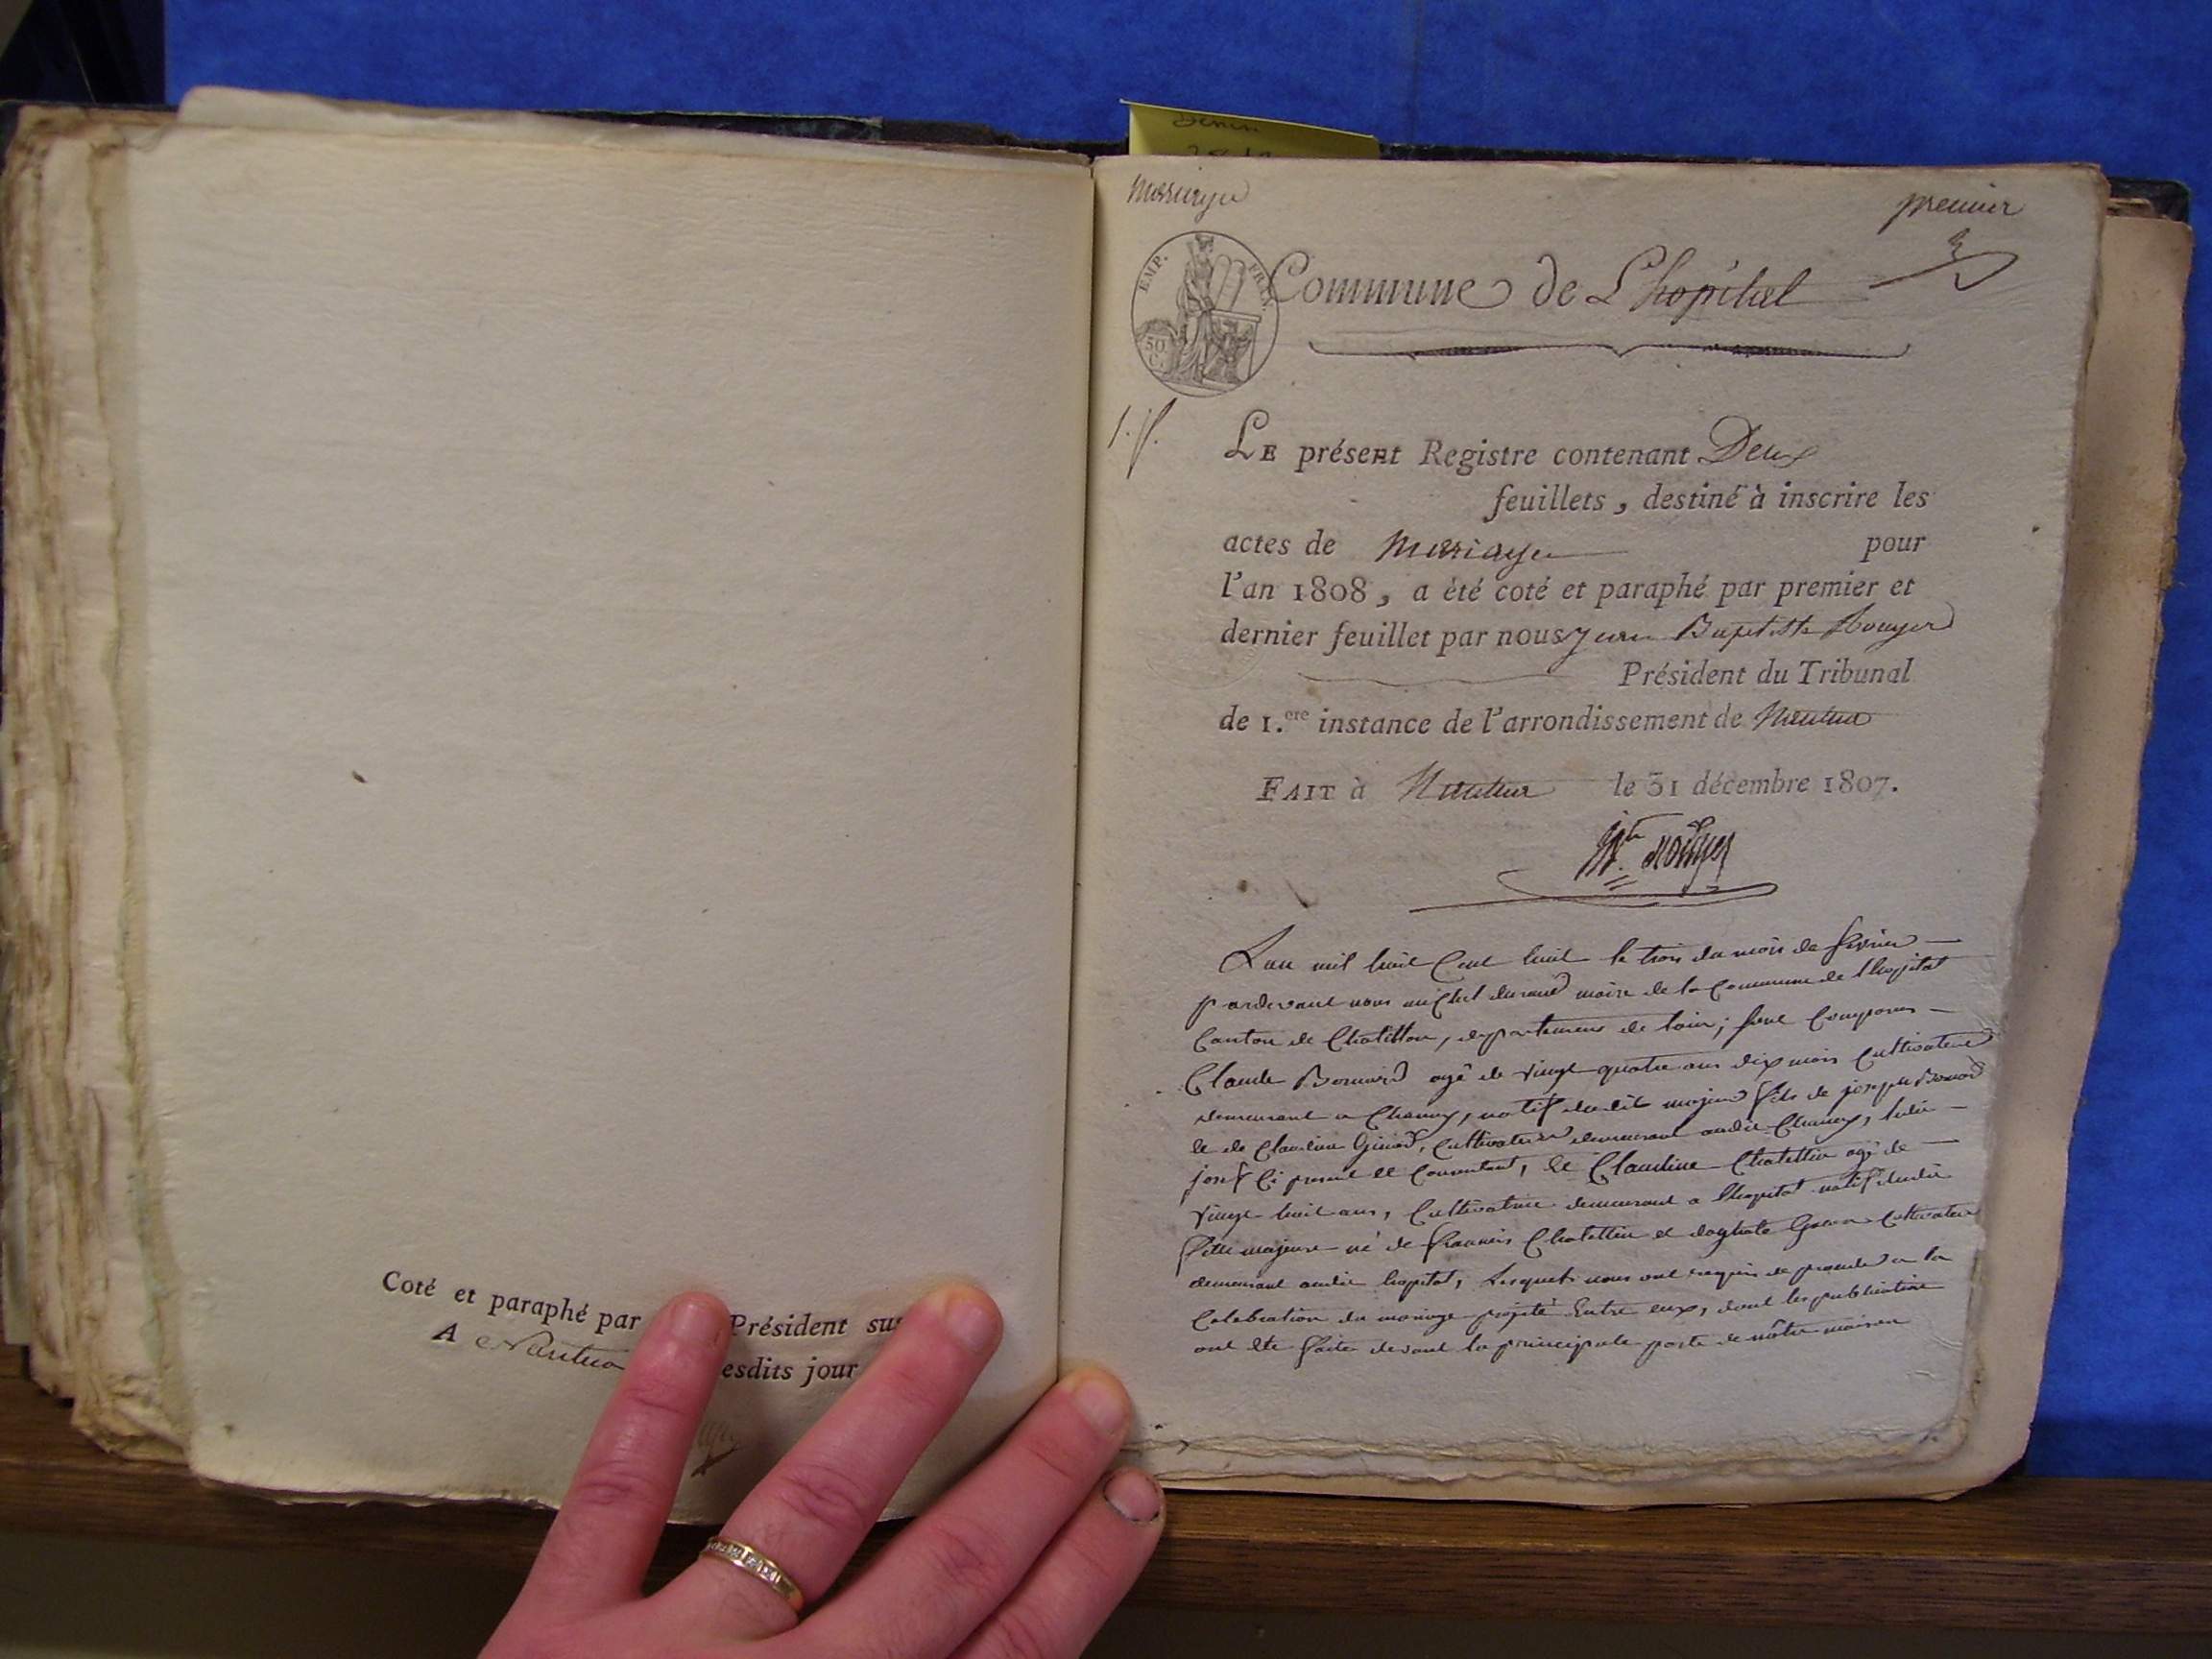 Coté et paraphé par Président sus
A Nantua esdits jour
mariage
premier
EMP. FRAN.
50 C.
Commune de L'hopital
LE présent Registre contenant Deux
feuillets, destiné à inscrire les
actes de mariage pour
l'an 1808, a été coté et paraphé par premier et
dernier feuillet par nous Jean Baptiste Rouyer
Président du Tribunal
de 1.ere instance de l'arrondissement de Nantua
FAIT à Nantua le 31 décembre 1807.
L'an mil huit Cent huit le trois du mois de fevrier
pardevant nous michel durand maire de la Commune de l'hopital
Canton de Chatillon, departement de lain; sont Comparus
Claude Bornard agé de vingt quatre ans dix mois Cultivateur
demeurant a Chanay, natif dudit majeur fils de joseph Bornard
et de Claudine Girod, Cultivateur demeurant audit Chanay, ledit
josef Ci present et Consentant, et Claudine Chatellin agé de
vingt huit ans, Cultivatrice demeurant a lhopital natif dudit
fille majeure né de francois Chatellin et Cultivateur
demeurant audit hopital, Lesquels nous ont requis de proceder a la
Celebration du mariage projeté Entre eux, dont les publications
ont été faites devant la principale porte de nôtre maison